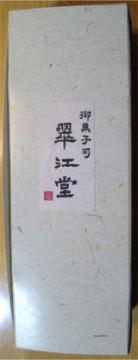 御菓子司
翠江堂